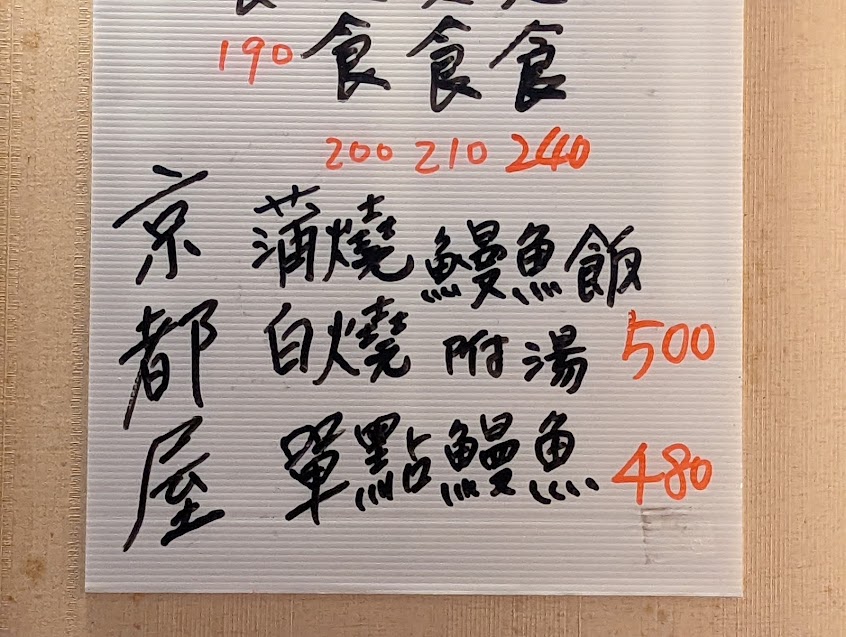 190 食 食 食
200 210 240
京都屋
蒲燒 鰻魚飯
白燒 附湯 500
單點鰻魚 480